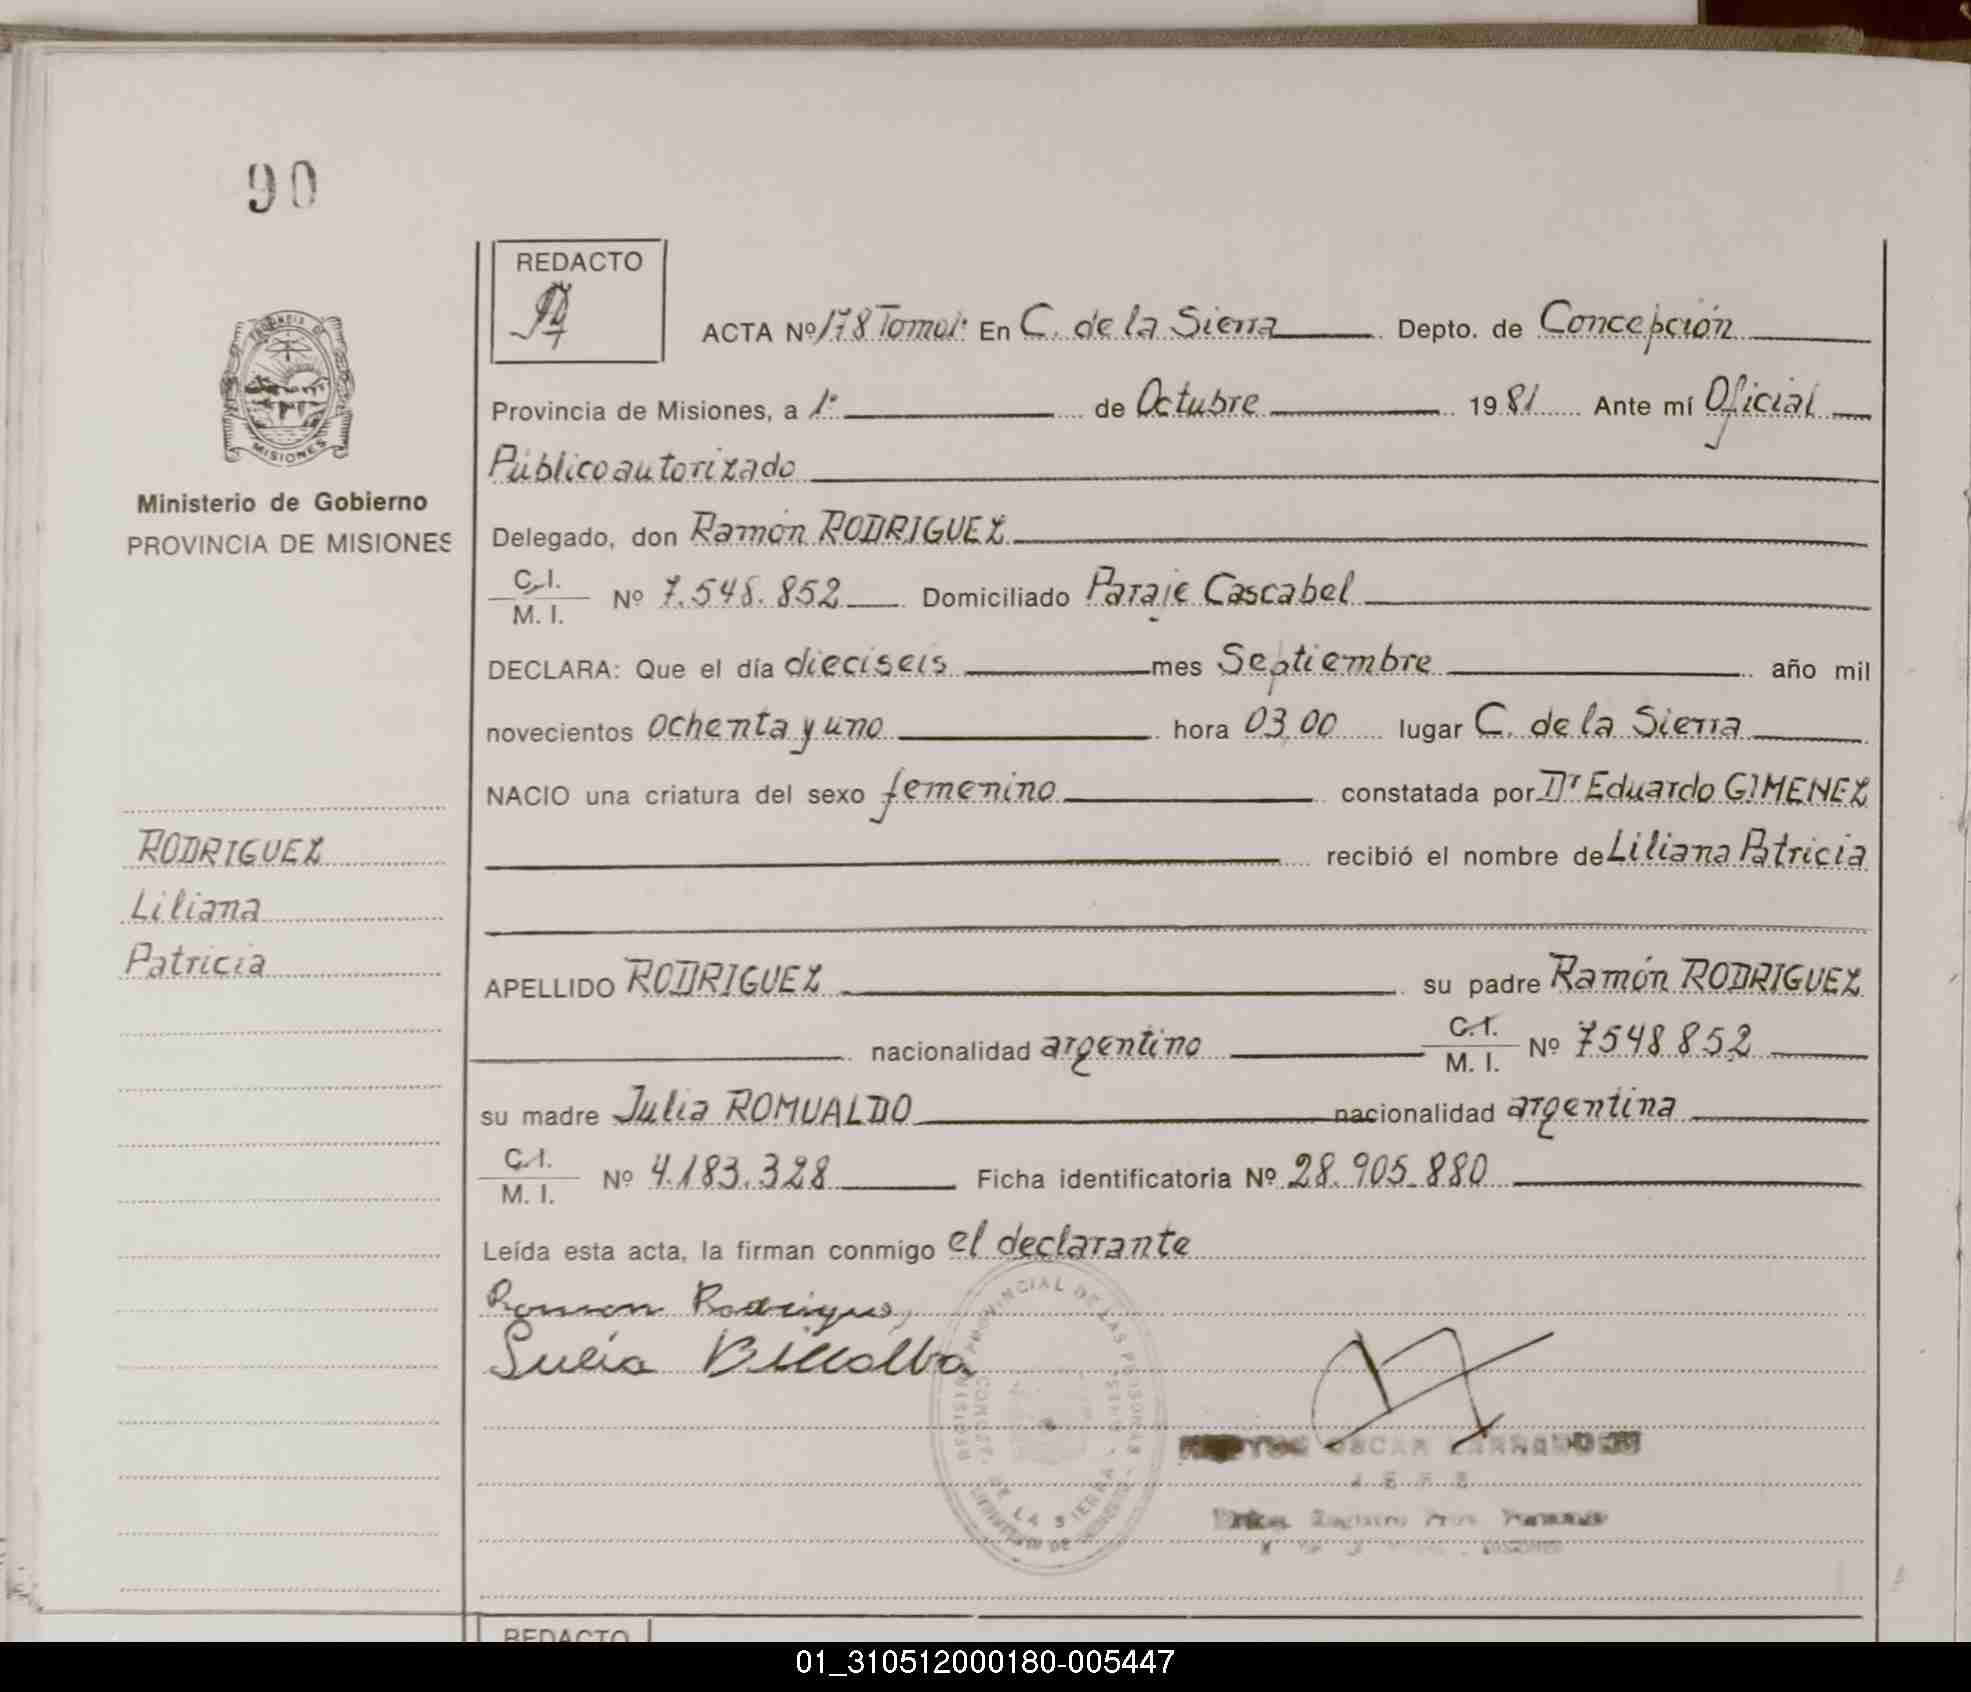 90
REDACTO
ACTA Nº 178 Tomo 1º En C. de la Sierra Depto. de Concepción
Provincia de Misiones, a 1º de Octubre 1981 Ante mí Oficial
Público autorizado
Ministerio de Gobierno
PROVINCIA DE MISIONES
Delegado, don Ramón RODRIGUEZ
C.I.
M. I. Nº 7.548.852 Domiciliado Paraje Cascabel
DECLARA: Que el día dieciseis mes Septiembre año mil
novecientos ochenta y uno hora 03,00 lugar C. de la Sierra
NACIO una criatura del sexo femenino constatada por Dr Eduardo GIMENEZ
RODRIGUEZ
recibió el nombre de Liliana Patricia
Liliana
Patricia
APELLIDO RODRIGUEZ su padre Ramón RODRIGUEZ
nacionalidad argentino C.I. M. I. Nº 7548852
su madre Julia ROMUALDO nacionalidad argentina
C.I.
M. I. Nº 4.183.328 Ficha identificatoria Nº 28.905.880
Leída esta acta, la firman conmigo el declarante
Ramon Rodrigues
OSCAR
JEFE
DE LA SIERRA
REDACTO
01_310512000180-005447